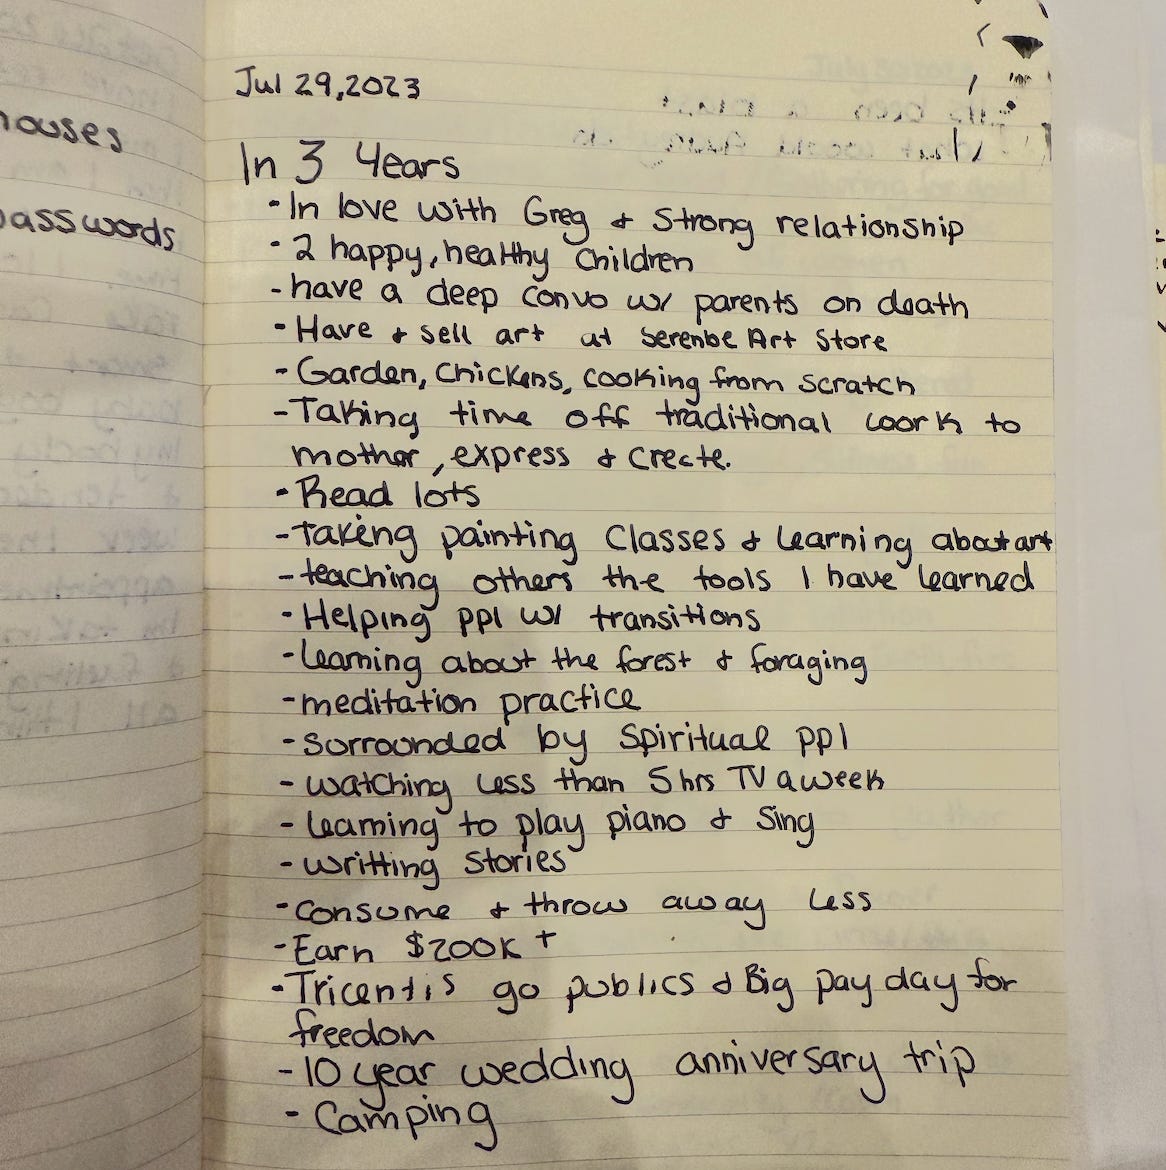 houses
passwords
Jul 29,2023
In 3 Years
- In love with Greg & Strong relationship
- 2 happy, healthy Children
- have a deep convo w/ parents on death
- Have & sell art at Serenbe Art Store
- Garden, Chickens, cooking from scratch
- Taking time off traditional work to
mother, express & create.
- Read lots
- taking painting Classes & learning about art
- teaching others the tools I have learned
- Helping ppl w/ transitions
- learning about the forest & foraging
- meditation practice
- sorrounded by spiritual ppl
- watching less than 5 hrs TV a week
- learning to play piano & Sing
- writting stories
- consume & throw away less
- Earn $200K +
- Tricentis go publics & Big pay day for
freedom
- 10 year wedding anniversary trip
- Camping